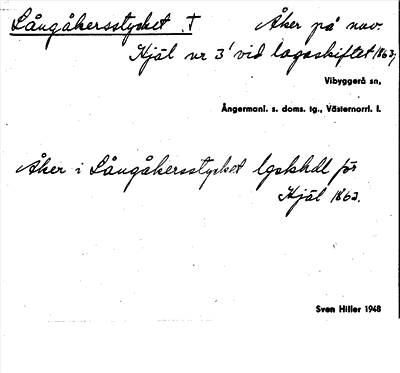 Långåkersstycket † Åker på nuv.
Hjäl nr 3¹ vid lagaskiftet 1863,
Vibyggerå sn,
Ångermanl. s. doms. tg., Västernorrl. l.
Åker i Långåkersstycket lgskhdl för
Hjäl 1863.
Sven Hiller 1948